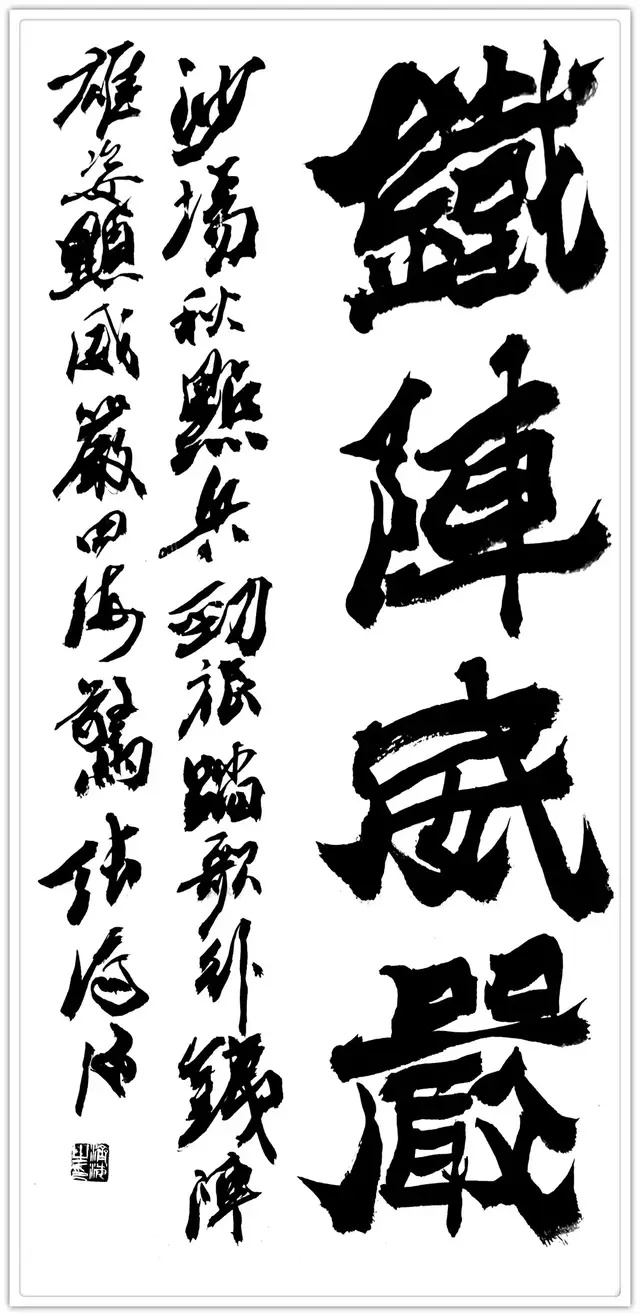 鐵陣威嚴
沙場秋點兵勁旅踏歌行鐵陣
雄姿顯威嚴四海驚張濟海